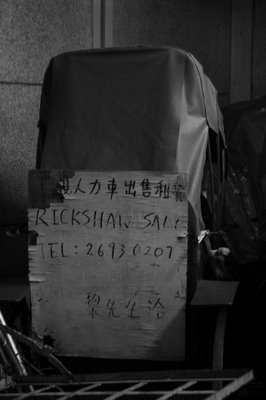 人力車出售租
RICKSHAW SAL
TEL: 26930207
黎先生洽